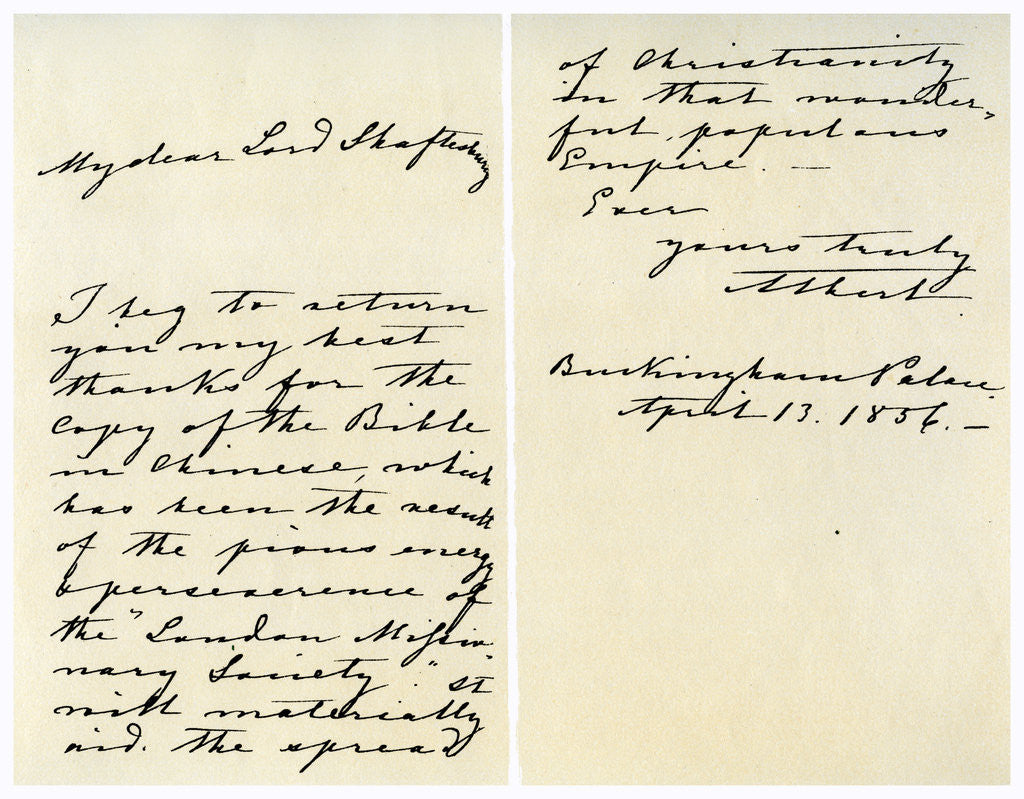 My dear Lord Shaftesbury
I beg to return
you my best
thanks for the
copy of the Bible
in Chinese, which
has been the result
of the pious energy
& perseverence of
the "London Missio-
nary Society." It
will materially
aid. the spread
of Christianity
in that wonder-
ful, populous
Empire. —
Ever
yours truly
Albert
Buckingham Palace.
April 13. 1856. —